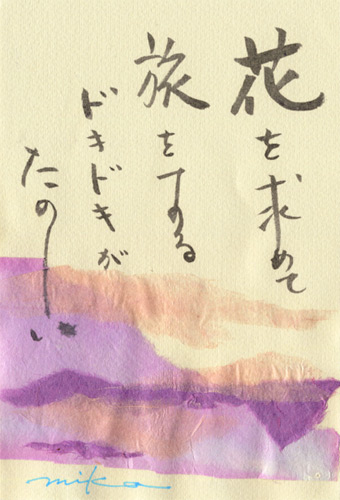 花を求めて
旅をする
ドキドキが
たのしい
mika